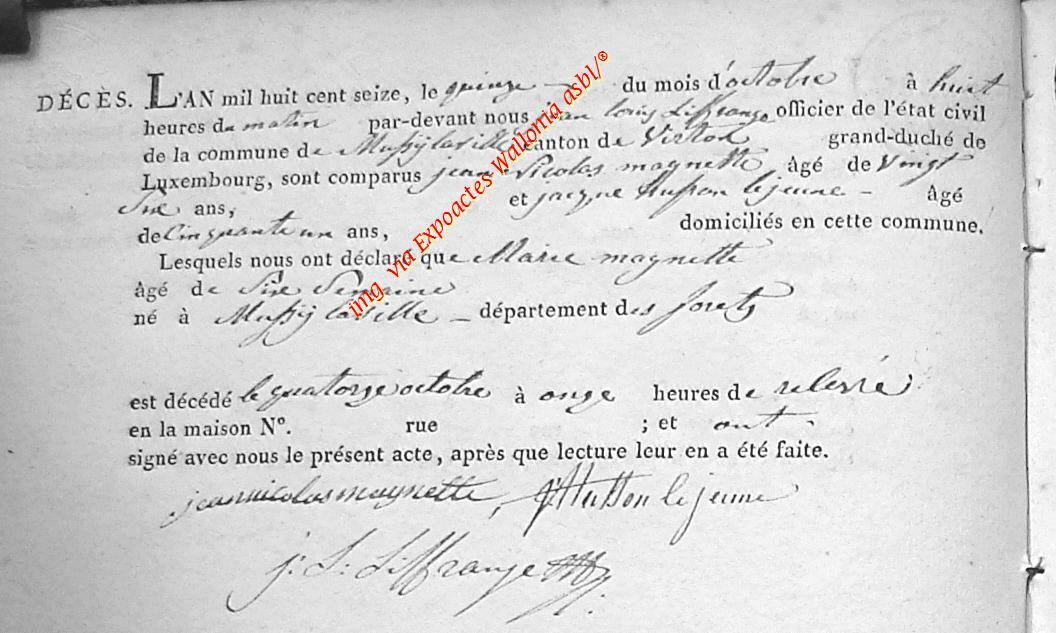 DÉCÈS. L'AN mil huit cent seize, le quinze — du mois d'octobre à huit
heures du matin par-devant nous jean louis Liffrange officier de l'état civil
de la commune de Mussy la ville canton de Virton grand-duché de
Luxembourg, sont comparus jean Nicolas magnette âgé de Vingt
Six ans, et jacque Husson le jeune — âgé
de Cinquante un ans, domiciliés en cette commune.
Lesquels nous ont déclaré que Marie magnette
âgé de Six Semaine
né à Mussy la ville — département des forets
est décédé le quatorze octobre à onze heures de relevé
en la maison N°. rue ; et ont
signé avec nous le présent acte, après que lecture leur en a été faite.
jean nicolas magnette, j Husson le jeune
j: L: Liffrange
img via Expoactes Wallonia asbl/®